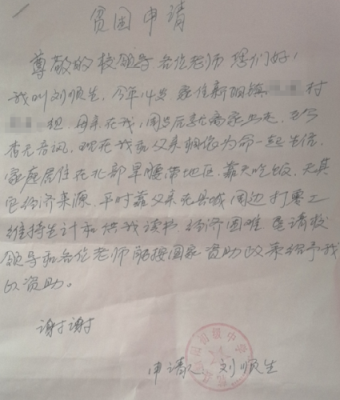 贫困申请
尊敬的校领导各位老师 您们好!
我叫刘顺生, 今年14岁 家住新细镇 村
组 母亲在我 周岁后患病离家出走, 至今
杳无音讯, 现在我和父亲相依为命一起生活,
家庭居住在北部旱腰带地区, 靠天吃饭, 无其
它经济来源, 平时靠父亲在县城周边打零工
维持生计和供我读书 经济困难 恳请校
领导和各位老师能按国家资助政策给予我
的资助。
谢谢
申请人: 刘顺生